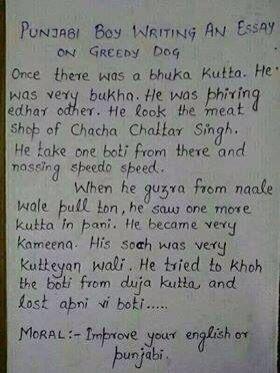 PUNJABI BOY WRITING AN ESSAY
ON GREEDY DOG
Once there was a bhuka Kutta. He
was very bukha. He was phiring
edhar odher. He look the meat
shop of Chacha Chattar Singh.
He take one boti from there and
nassing speedo speed.
When he guzra from naale
wale pull ton, he saw one more
kutta in pani. He became very
Kameena. His soch was very
Kutteyan wali. He tried to khoh
the boti from duja kutta and
lost apni vi boti.....
MORAL:- Improve your english or
punjabi.